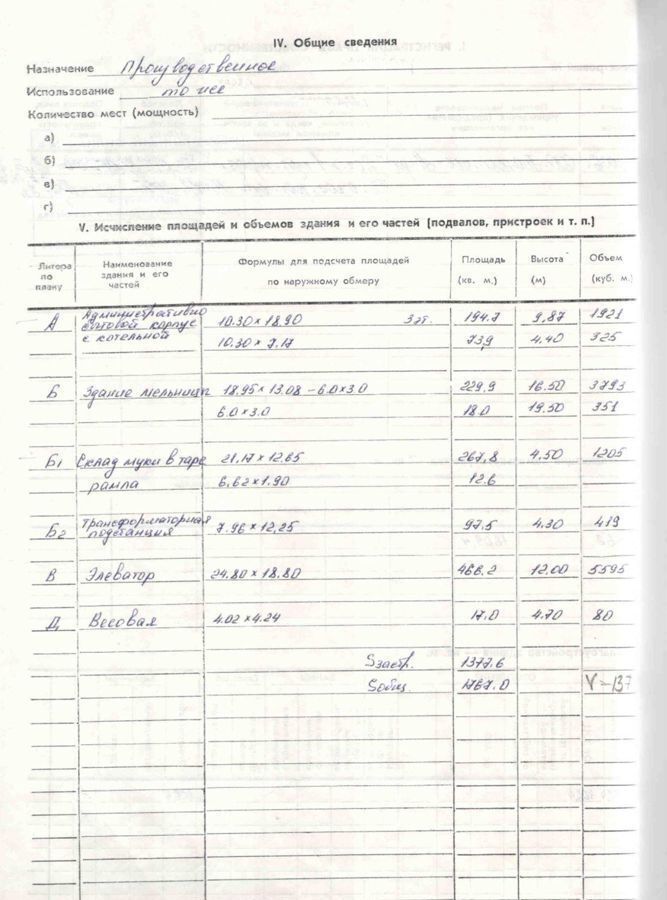 IV. Общие сведения
Назначение Производственное
Использование то же
Количество мест (мощность)
а)
б)
в)
г)
V. Исчисление площадей и объемов здания и его частей (подвалов, пристроек и т. п.)
Литера по плану Наименование здания и его частей Формулы для подсчета площадей по наружному обмеру Площадь (кв. м.) Высота (м) Объем (куб. м.
А Административно бытовой корпус 10.30 х 18.90 3 эт. 194.7 9,87 1921
с котельной 10.30 х 7.17 73,9 4.40 325
Б Здание мельницы 18.95 х 13.08 – 6.0х3.0 229,9 16.50 3793
6.0 х 3.0 18.0 19.50 351
Б1 Склад муки в таре 21,17 х 12.65 267,8 4,50 1205
рампа 6,62 х 1.90 12.6
Б2 Трансформаторная подстанция 7.96 х 12,25 97,5 4.30 419
В Элеватор 24.80 х 18.80 466.2 12.00 5595
Д Весовая 4.02 х 4.24 17.0 4.70 80
Sзастр. 1377.6
Sобщ. 1767.0 V=137